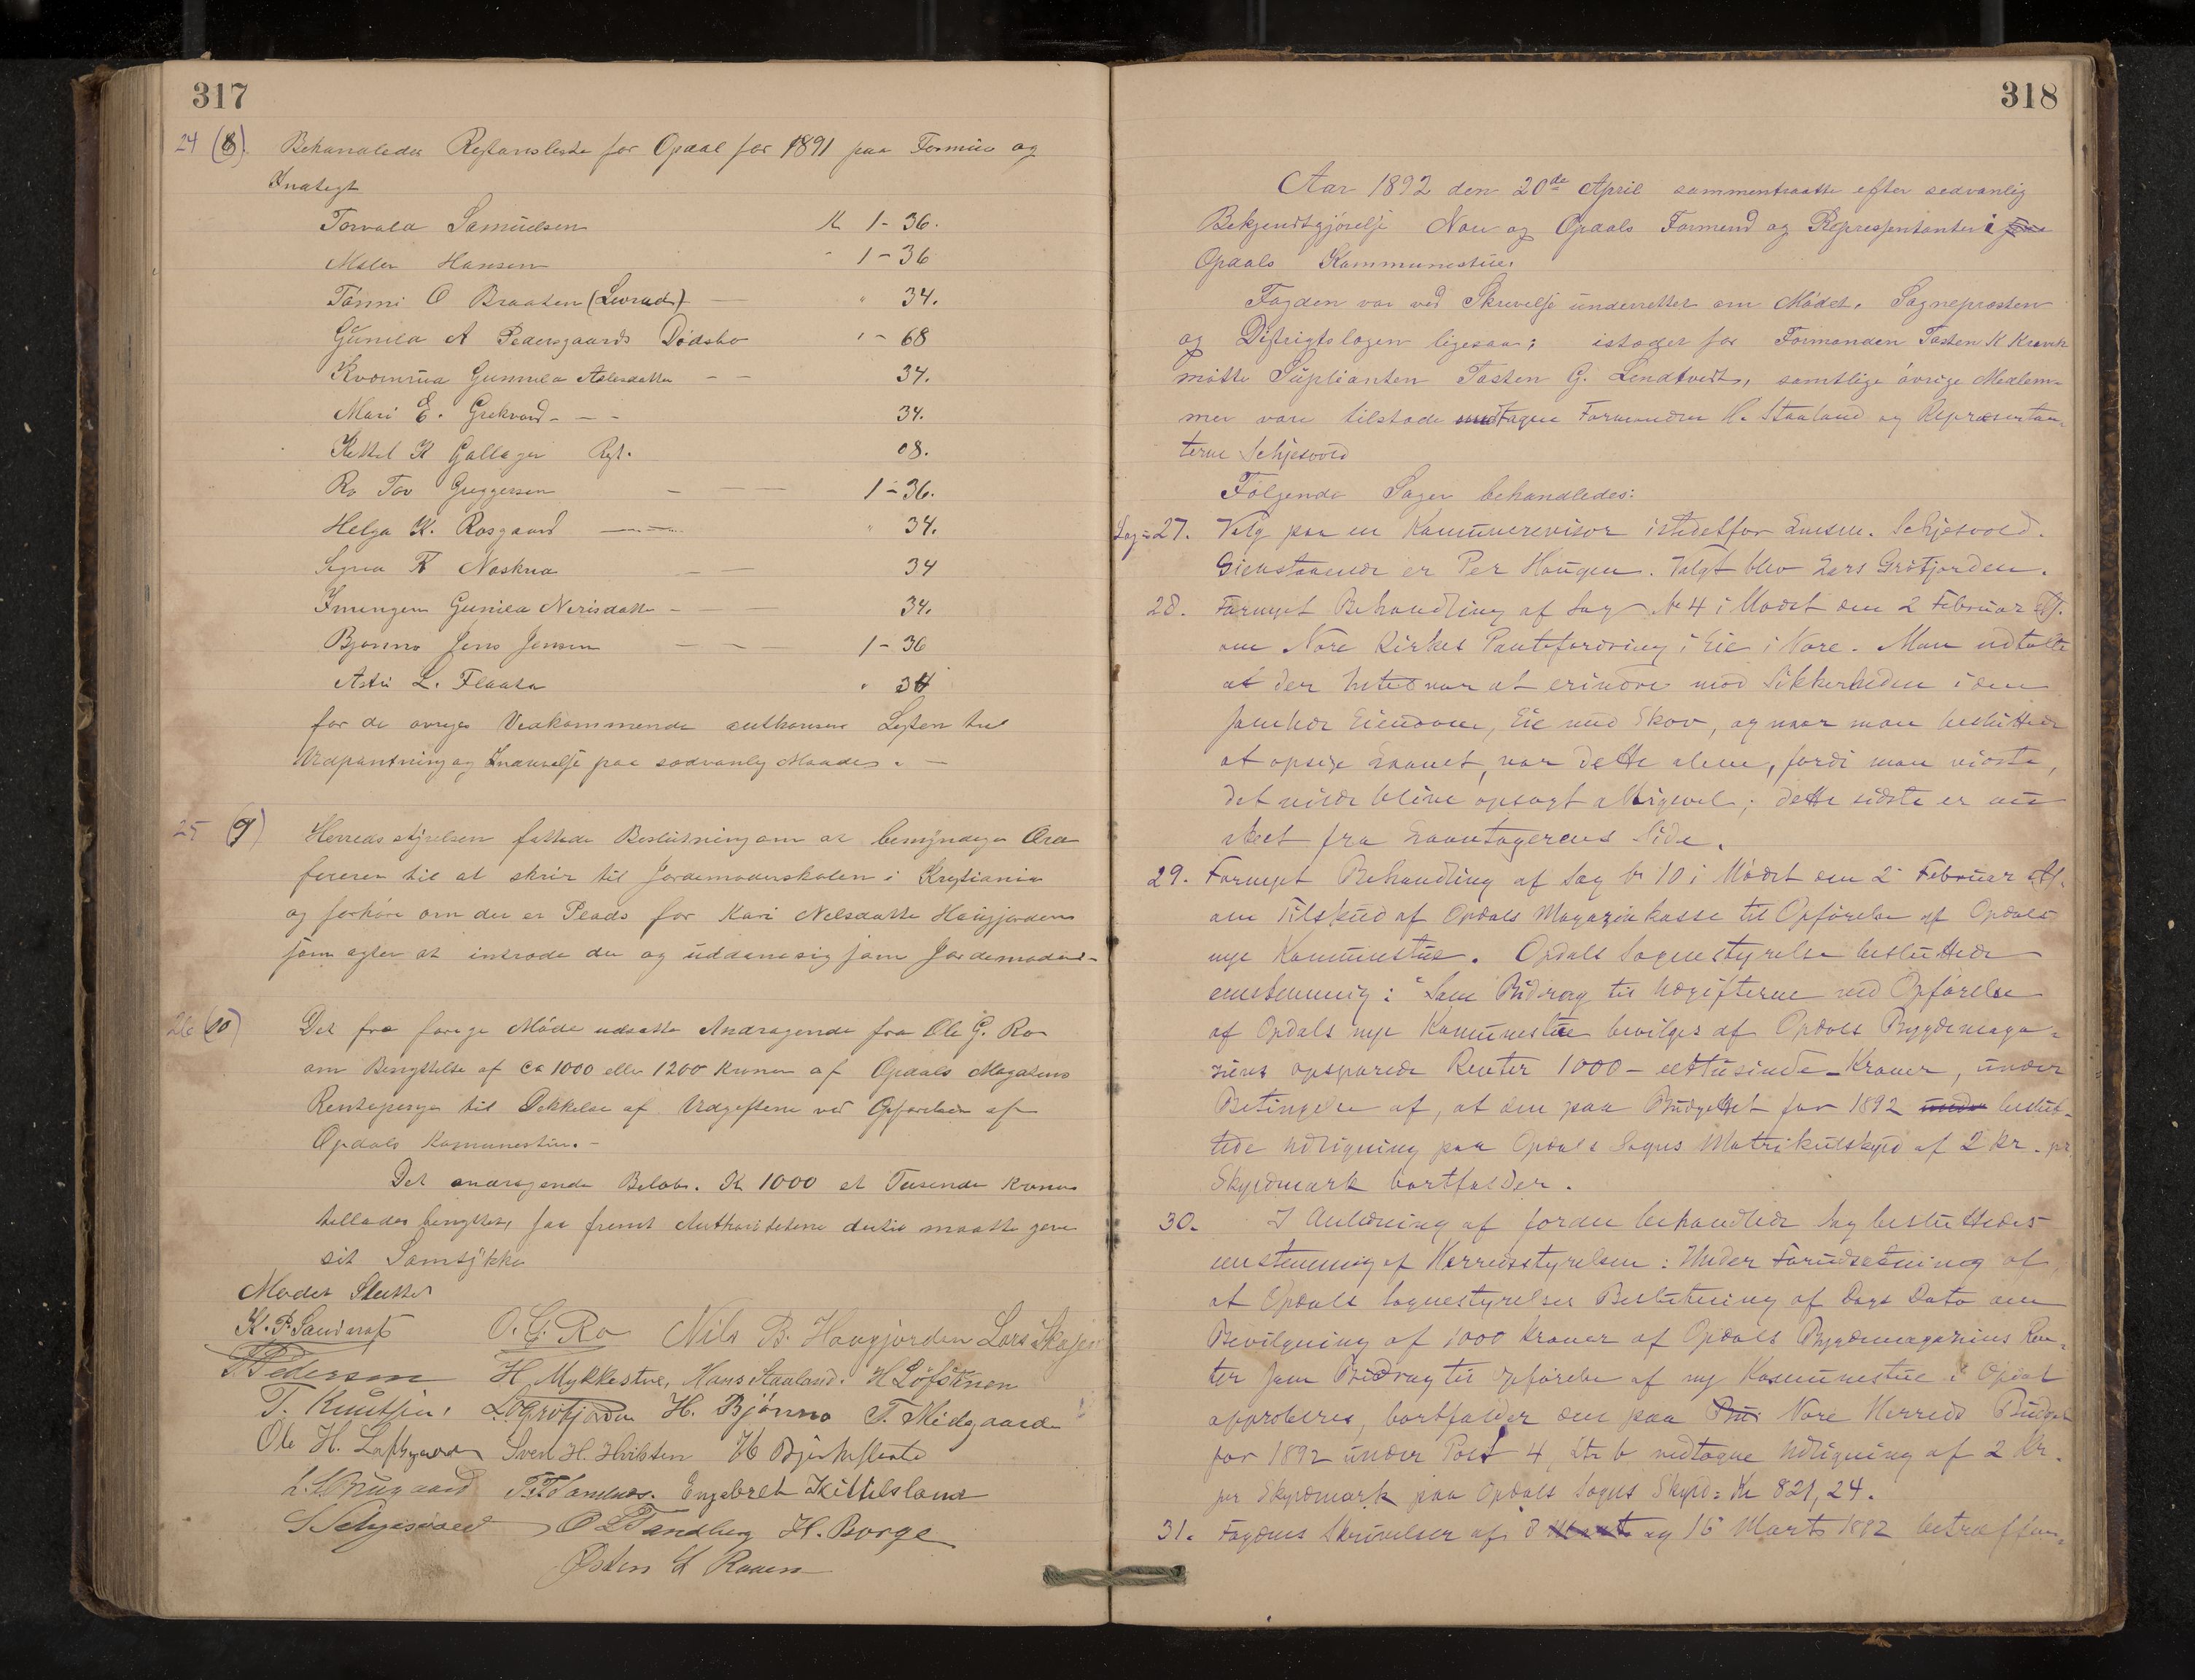 317
24 (8). Behandledes Restanseliste for Opdal for 1891 paa Formue og
Indtægt
Torvald Samuelsen K 1-36.
Hansen " 1-36
Tönni O Braaten (Livrud) — " 34.
Gunild A Pedersgaards Dödsbo " - 68
Gunnild Aslesdatter - - 34.
Mari E. Grekvord - - - 34.
Kettil K Gallager Rest. 08.
Ro Tov Greggersen - — — 1-36.
Helga K. Rosgaard — — " 34.
Signe K Noskrud - — 34
Imingen Gunild Nerisdatter - — — 34.
Bjönno Jens Jensen — - — 1-36
Astri L. Flaata " 34
for de övrige Vedkommende authoriseres Listen til
Udpantning og Inddrivelse paa sædvanlig Maade. —
25 (9) Herredsstyrelsen fattede Beslutning om at bemyndige Ord
föreren til at skrive til Jordemoderskolen i Kristiania
og forhöre om der er Plads for Kari Nilsdatter Haugjorden
som agter at indtræde der og uddanne sig som Jordemoder-
26 (10) Det fra forrige Möde udsatte Andragende fra Ole G. Ro
om Benyttelse af ca 1000 eller 1200 Kroner af Opdals Magasins
Rentepenge til Dekkelse af Udgifterne ved Opförelsen af
Opdals Kommunestue. -
Det andragende Belöb. Kr 1000 et Tusende Kroner
tillades benyttet, saa fremt Authoriteterne dertil maatte give
sit Samtykke
Mödet Sluttet
K. P. Sandnæs O. G. Ro Nils B. Haugjorden Lars Skajen
T. Pedersen H. Mykkestue, Hans Staaland. H Löfsthuen
T. Knutsen, L O Grötjorden H. Björno T. Midgaard
Ole H. Loftsgaard Sven H. Hvilsten H Björkeflaata
L. S. Brugaard T. T. Sandnes. Engebret Kittilsland
S Schjesvold O L Tandberg H. Borge
Østen H Raaen
318
Aar 1892 den 20de April sammentraatte efter sedvanlig
Bekjendtgjörelse Nore og Opdals Formend og Representanter i
Opdals Kommunestue.
Fogden var ved Skrivelse underrettet om Mödet. Sognepresten
og Distrigtslægen ligesaa; istædet for Formanden Tosten K Kravik
mötte Suplianten Tosten G. Lendtvedt, samtlige övrige Medlem-
mer vare tilstede undtagen Formanden H. Staaland og Repræsentan-
terne Schjesvold
Fölgende Sager behandledes:
Sag = 27. Valg paa en Kommunerevisor istedetfor Lensm. Schjesvold.
Gienstaaende er Per Haugen. Valgt blev Lars Grötjorden.
28. Fornyet Behandling af Sag No 4 i Mödet den 2 Februar d. A.
om Nore Kirkes Pantefordring i Eie i Nore. Man udtalte
at der Intet var at erindre mod Sikkerheden i den
samlede Eiendom, Eie med Skov, og naar man besluttede
at opsige Laanet, var dette alene, fordi man vidste,
det vilde blive opsagt alligevel; dette sidste er nu
skeet fra Laantagerens Side.
29. Fornyet Behandling af Sag No 10 i Mödet den 2 Februar d. A.
om Tilskud af Opdals Magazinkasse til Opförelse af Opdals
nye Kommunestue. Opdals Sognestyrelse besluttede
enstemmig: "Som Bidrag til Udgifterne ved Opförelse
af Opdals nye Kommunestue bevilges af Opdals Bygdemaga-
zins opsparede Renter 1000 - ettusinde - Kroner, under
Betingelse af, at den paa Budgettet for 1892 beslut-
tede Udligning paa Opdals Sogns Matrikulskyld af 2 Kr. pr
Skyldmark bortfalder.
30. I Anledning af foran behandlede Sag besluttedes
enstemmig af Herredsstyrelsen: Under Forudsetning af,
at Opdals Sognestyrelses Beslutning af Dags Dato om
Bevilgning af 1000 Kroner af Opdals Bygdemagazins Ren-
ter som Bidrag til Opförelse af ny Kommunestue i Opdal
approberes, bortfalder den paa Nore Herreds Budget
for 1892 under Post 4, Litr b vedtagne Udligning af 2 Kr.
pr Skyldmark paa Opdals Sogns Skyld = Kr 821,24.
31. Fogdens Skrivelser af 8 og 15 Marts 1892 betræffen-